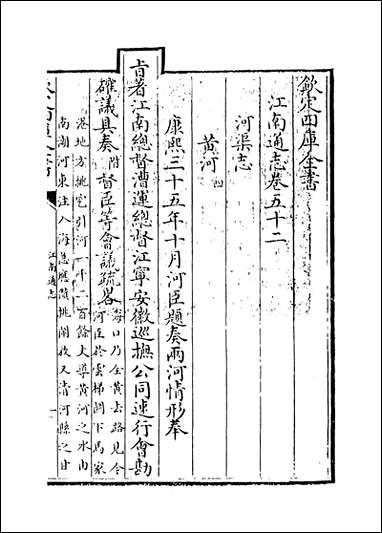 欽定四庫全書
江南通志卷五十二
河渠志
黃河四
康熙三十五年十月河臣題奏兩河情形奉
旨著江南總督漕運總督江寧安徽巡撫公同速行會勘
確議具奏時督臣等會議疏畧
海口乃全黃去路見今
河臣於雲梯關下馬家
港地方挑空引河一千二百餘丈導黃河之水由
南潮河東注入海急應隄挑闊放又清河縣之甘
江南通志